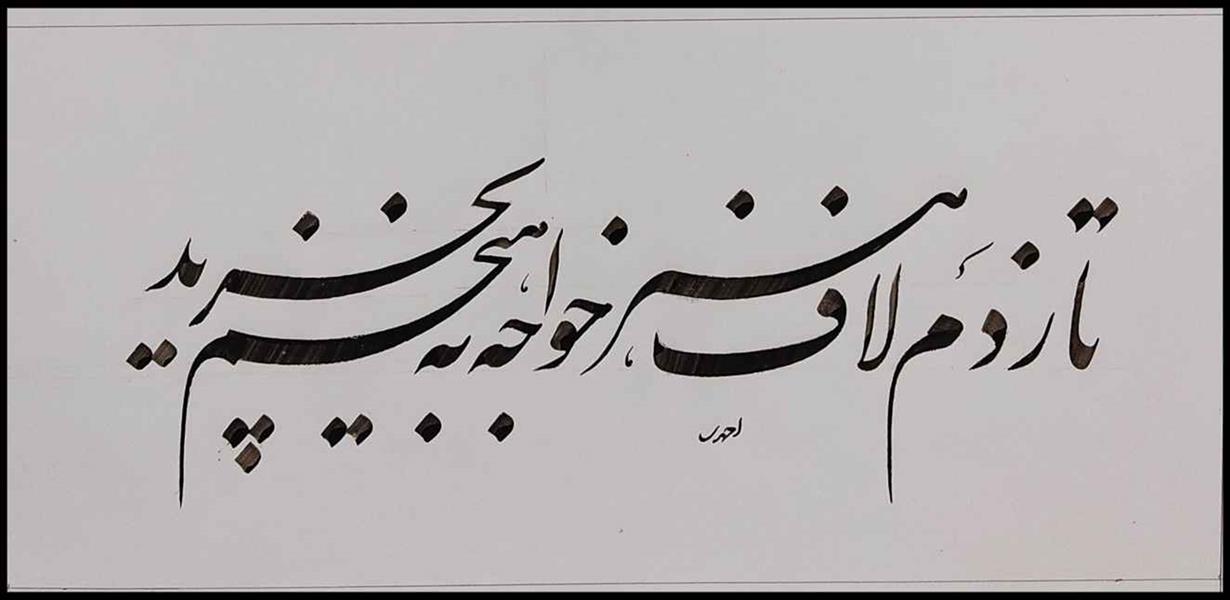 تا زدم لاف هنر خواجه به هیچم بخرید